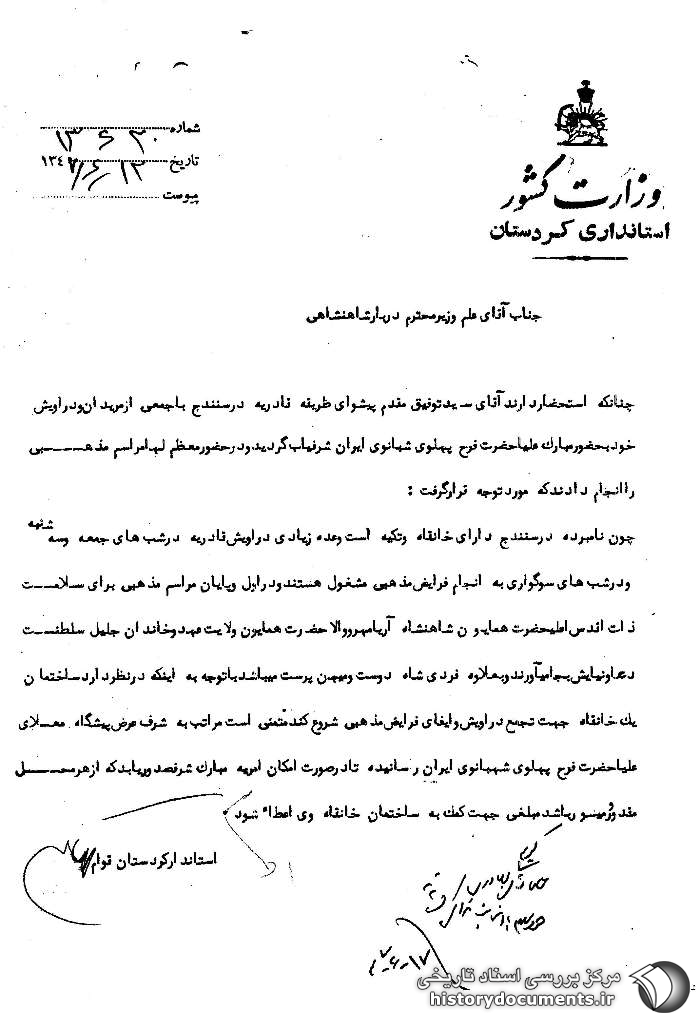 وزارت کشور
استانداری کردستان
شماره ۱۳۶۳۰
تاریخ ۱۳۴۷/۶/۱۳
پیوست
جناب آقای علم وزیر محترم دربار شاهنشاهی
چنانکه استحضار دارند آقای سید توفیق مقدم پیشوای طریقه قادریه در سنندج با جمعی از مریدان و دراویش
خود بحضور مبارک علیاحضرت فرح پهلوی شهبانوی ایران شرفیاب گردید و در حضور معظم لها مراسم مذهبی
را انجام دادند که مورد توجه قرار گرفت :
چون نامبرده در سنندج دارای خانقاه وتکیه است وعده زیادی دراویش قادریه در شب های جمعه وسه شنبه
و در شب های سوگواری به انجام فرایض مذهبی مشغول هستند و در اول و پایان مراسم مذهبی برای سلامت
ذات اقدس اعلیحضرت همایون شاهنشاه آریامهر و والا حضرت همایون ولایت عهد و خاندان جلیل سلطنت
دعا و نیایش بجا میآورند و بعلاوه فردی شاه دوست و میهن پرست میباشد با توجه به اینکه در نظر دارد ساختمان
یک خانقاه جهت تجمع دراویش و ایفای فرایض مذهبی شروع کند متمنی است مراتب به شرف عرض پیشگاه معلای
علیاحضرت فرح پهلوی شهبانوی ایران رسانیده تا در صورت امکان امریه مبارک شرفصدور یابد که از هر محل
مقدور و میسور باشد مبلغی جهت کمک به ساختمان خانقاه وی اعطاء شود .
استاندار کردستان قوام
۴۷-۶-۱۷
مرکز بررسی اسناد تاریخی
historydocuments.ir